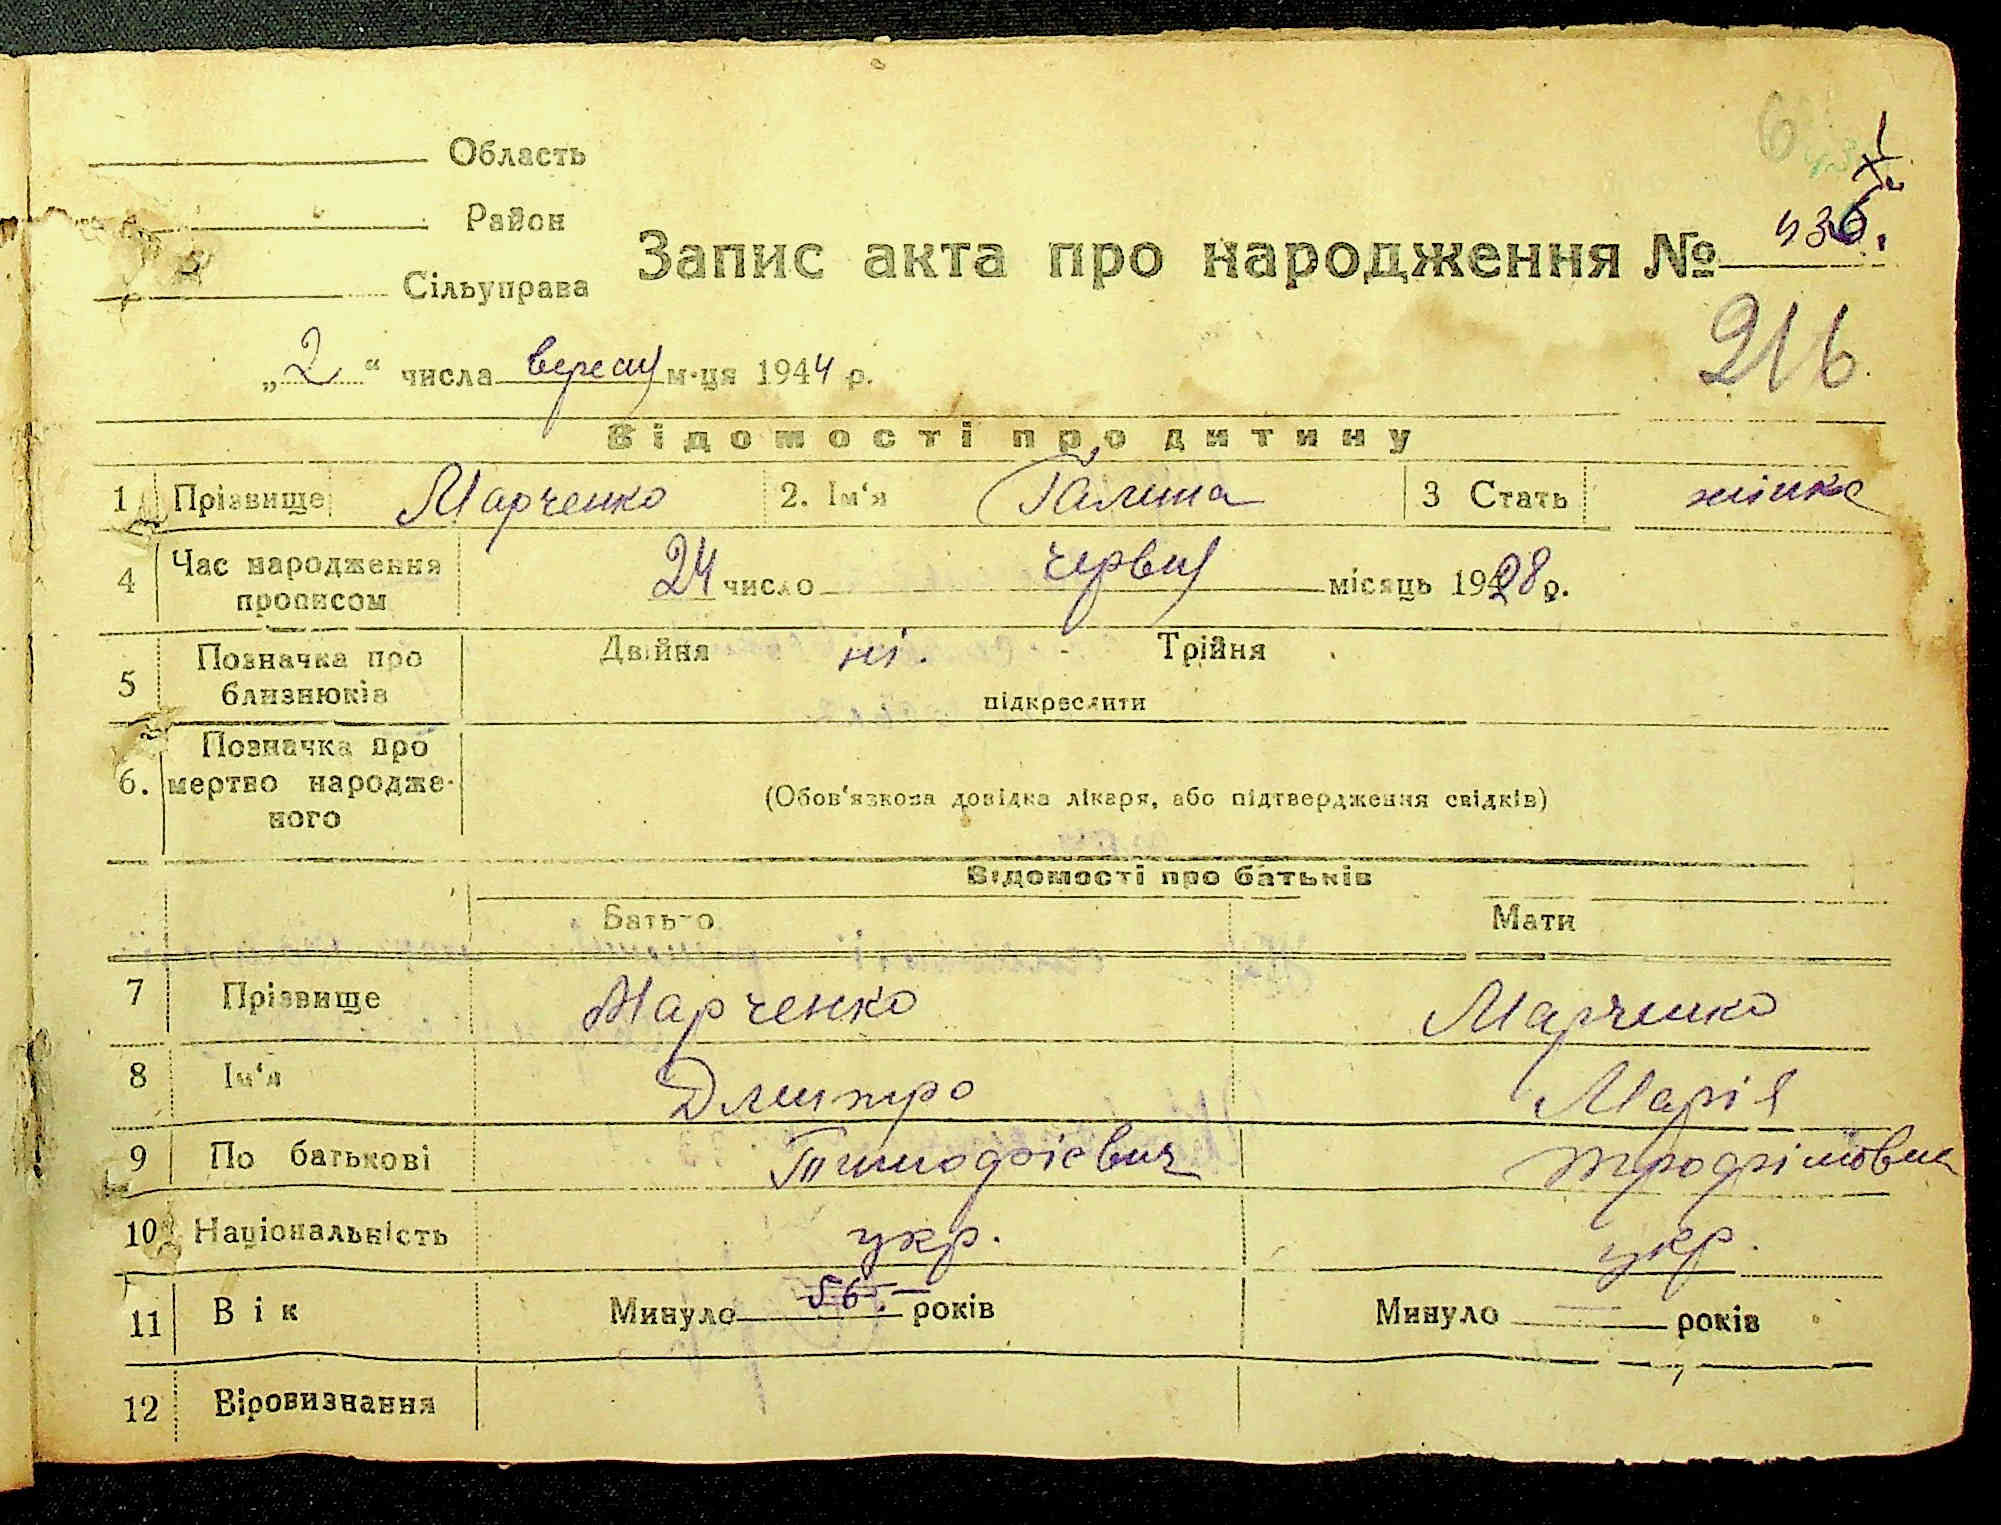 Область
Район
Сільуправа
Запис акта про народження № 436.
216
„2“ числа вересня м-ця 1944 р.
Відомості про дитину
1 Прізвище Марченко 2. Ім'я Галина 3 Стать жінка
4 Час народження прописом 24 число червня місяць 1928 р.
5 Позначка про близнюків Двійня ні. Трійня
підкреслити
6. Позначка про мертво народженого
(Обов'язкова довідка лікаря, або підтвердження свідків)
Відомості про батьків
Батько Мати
7 Прізвище Марченко Марченко
8 Ім'я Дмитро Марія
9 По батькові Тимофієвич Трофімовна
10 Національність укр. укр.
11 Вік Минуло 56 років Минуло — років
12 Віровизнання